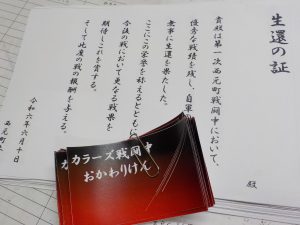 生還の証
殿
貴殿は第一次西元町戦闘中において、
優秀な戦績を残し、自軍
無事に生還を果たした。
ここにこの栄誉を称えるとともに
今後の戦において更なる戦果を
期待しこれを賞する。
そして此度の戦の報酬を与える。
令和六年六月十日
西元町
カラーズ戦闘中
おかわりけん